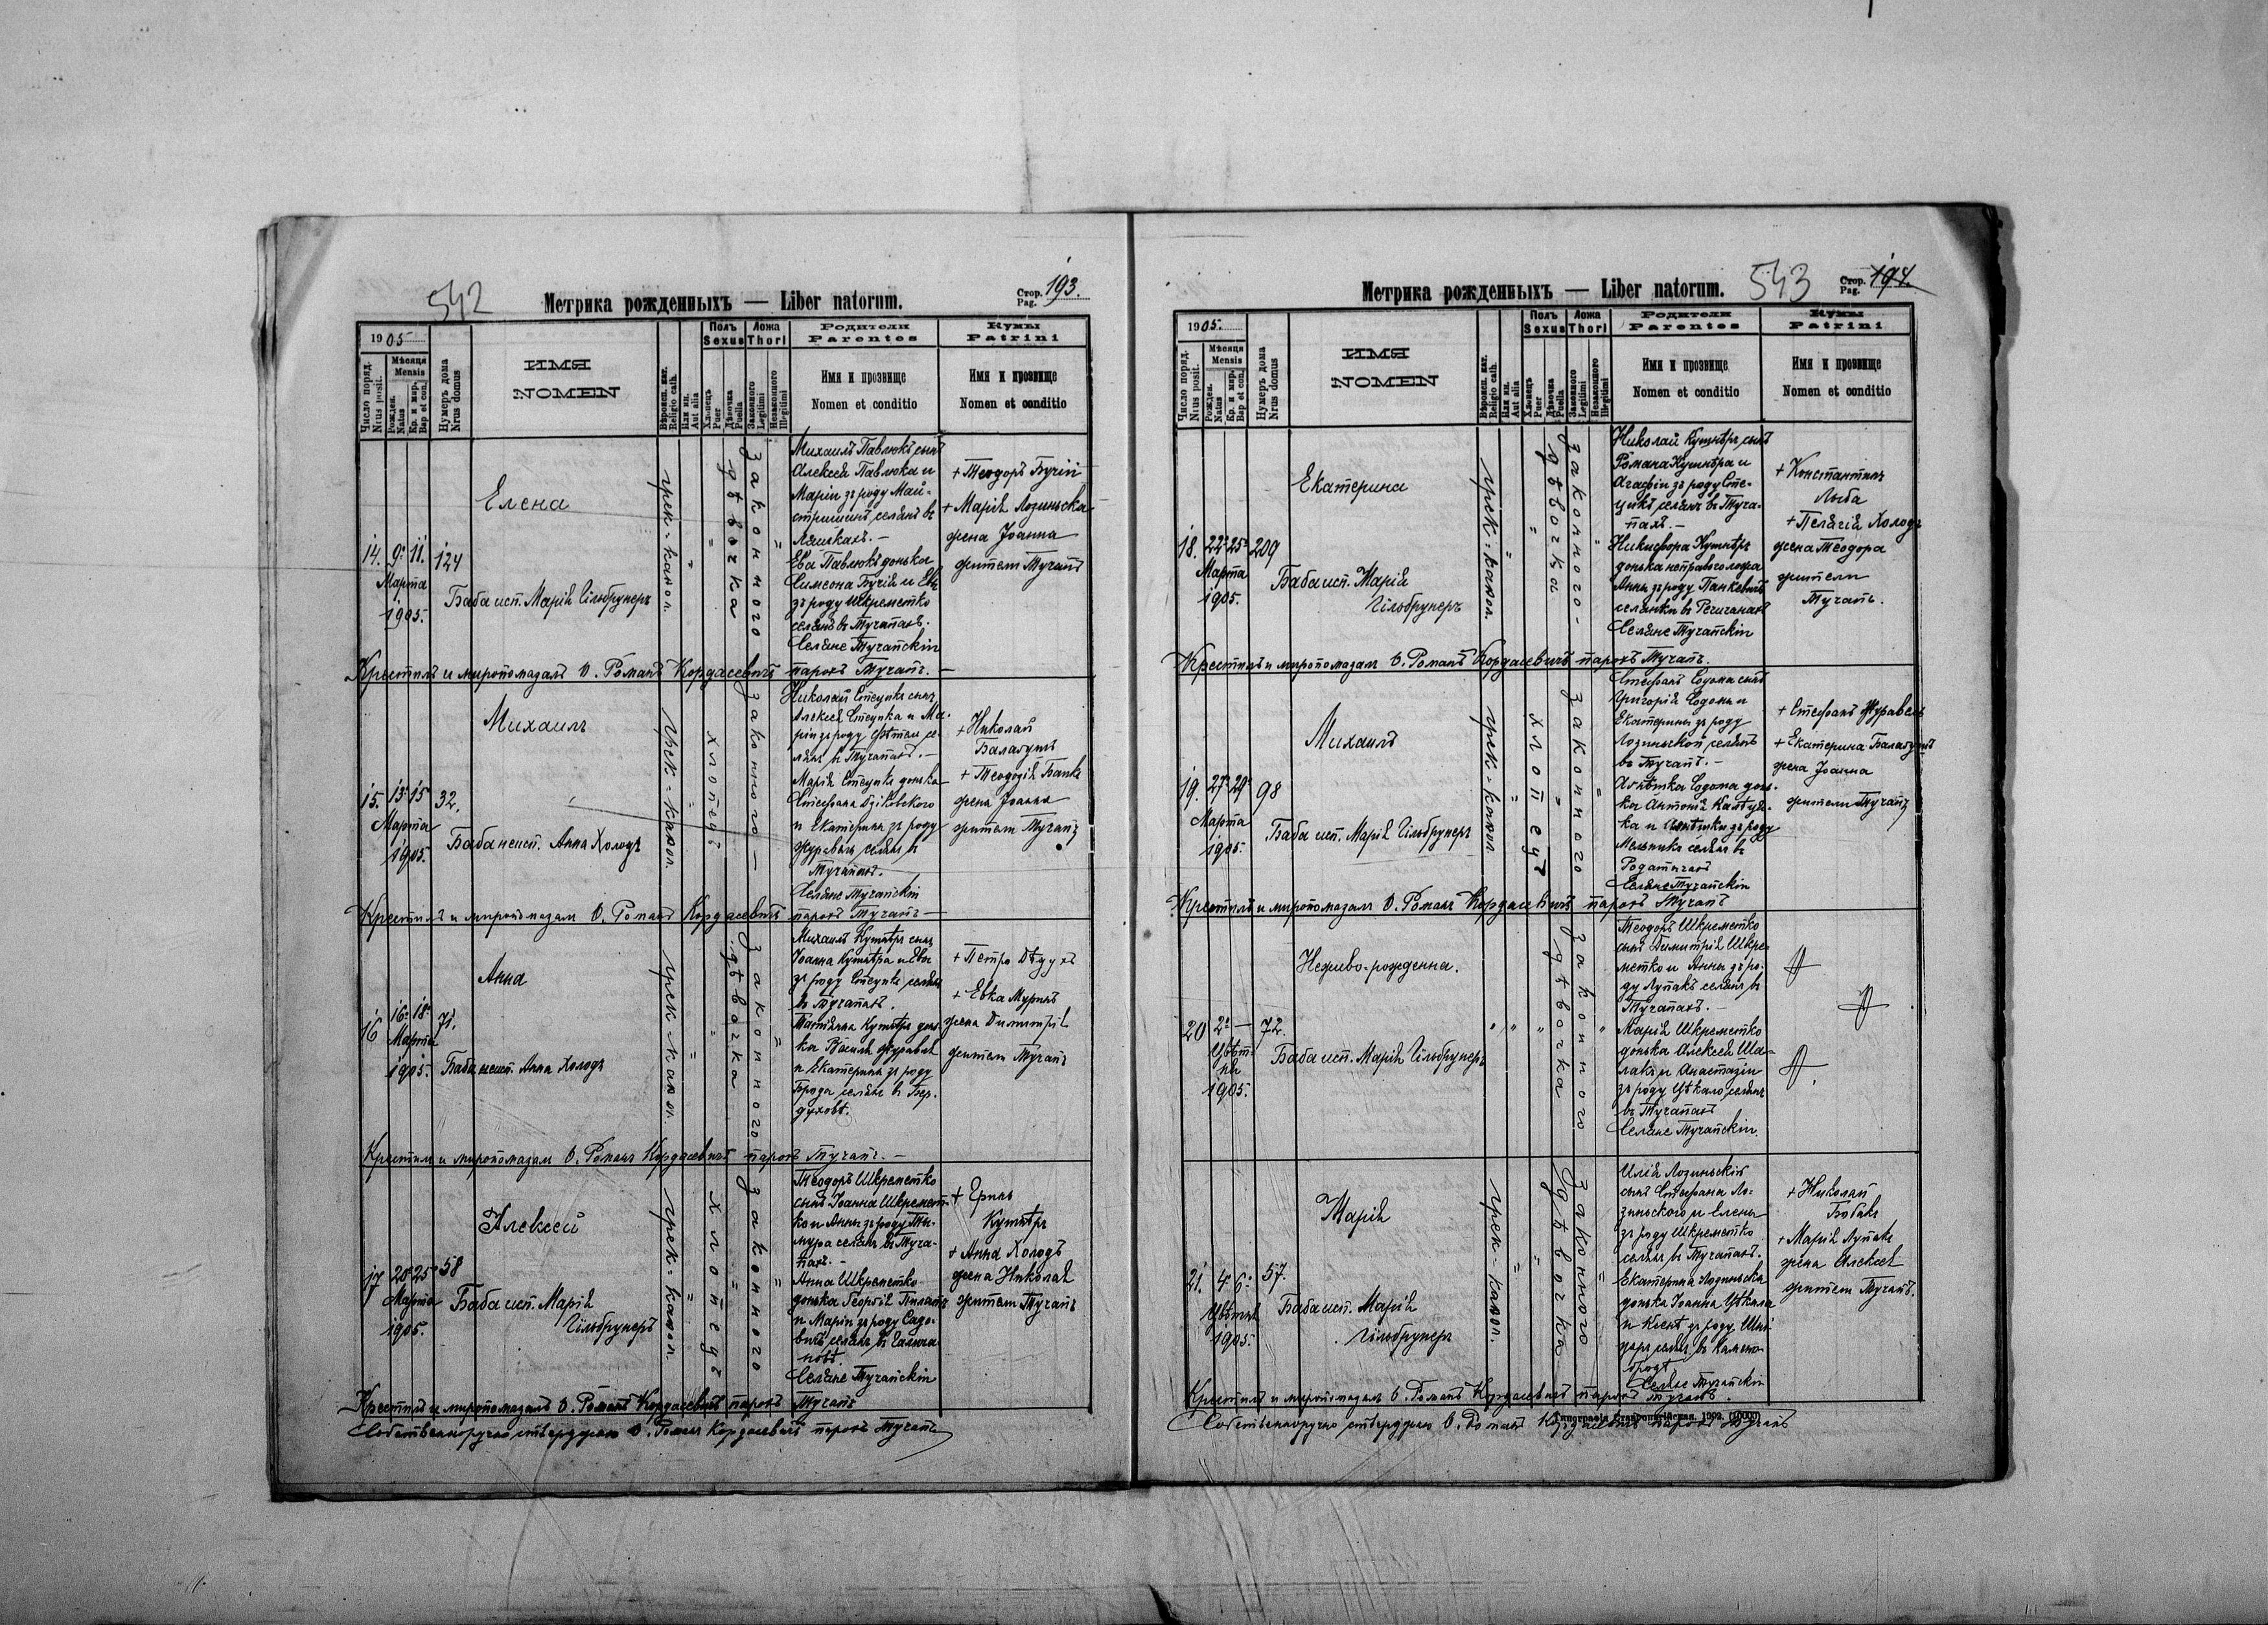 542
Метрика рожденныхъ — Liber natorum.
Стор. Pag. 193.
1905
Число поряд. Nrus posit.
Мѣсяця Mensis
Рожден. Natus
Кр. и мир. Bap et con.
Нумеръ дома Nrus domus
ИМЯ
NOMEN
Вѣроисп. кат. Religio cath.
Или ин. Aut alia
Полъ
Sexus
Хлопецъ Puer
Дѣвочка Puella
Ложа
Thori
Законного Legitimi
Незаконного Illegitimi
Родители
Parentes
Имя и прозвище
Nomen et conditio
Кумы
Patrini
Имя и прозвище
Nomen et conditio
14. 9. 11. 124
Марта
1905.
Елена
Баба исп. Марія Гільбрунеръ
грек=катол.
дѣвочка
законного
Михаилъ Павлюкъ сынъ
Алексея Павлюка и
Маріи зъ роду Май-
стришинъ, селянъ въ
Ева Павлюкъ донька
Симеона Бучія и Евы
зъ роду Шкреметко
селянъ въ Тучапахъ.
Селяне Тучапскіи
+ Теодоръ Бучій
+ Марія Лозинска
жена Іоанна
жители Тучапъ
Крестилъ и миропомазалъ О. Романъ Кордасевичъ парохъ Тучапъ. —
15. 13. 15 32.
Марта
1905.
Михаилъ
Баба неисп. Анна Холодъ
грек=катол.
хлопецъ
законного —
Николай Стецика сынъ
Алексея Стецика и Ма-
ріи зъ роду
лянъ въ Тучапахъ. —
Марія Стецика донька
Стефана Дзіковского
и Екатерины зъ роду
Журавель селянъ въ
Тучапахъ.
Селяне Тучапскіи
+ Николай
Балабухъ
жена Іоанна
жители Тучапъ
Крестилъ и миропомазалъ О. Романъ Кордасевичъ парохъ Тучапъ —
16 16. 18. 71.
Марта
1905.
Анна
Баба неисп. Анна Холодъ
грек=катол.
дѣвочка
законного
Михаилъ Кушнѣръ сынъ
Іоанна Кушнѣра и Евы
зъ роду Стецика селянъ
въ Тучапахъ.
Татіанна Кушнѣръ донь-
ка Василія Журавля
и Екатерины зъ роду
Брода селянъ въ Бер-
духовѣ.
+ Петро Дѣдухъ
+ Евка Муринъ
жена Димитрія
жители Тучапъ
Крестилъ и миропомазалъ О. Романъ Кордасевичъ парохъ Тучапъ. —
17 20. 25. 58
Марта
1905.
Алексей
Баба исп. Марія
Гільбрунеръ
грек=катол.
хлопецъ
законного
Теодоръ Шкреметко
сынъ Іоанна Шкремет-
ко и Анны зъ роду
селянъ въ Туча-
пахъ. —
Анна Шкреметко
донька Георгія Пилатъ
и Маріи зъ роду Садо-
вихъ, селянъ въ
Селяне Тучапскіи
Кушнѣръ
+ Анна Холодъ
жена Николая
жители Тучапъ
Крестилъ и миропомазалъ О. Романъ Кордасевичъ парохъ Тучапъ
Собственноручно стверджаю О. Романъ Кордасевичъ парохъ Тучапъ
543
Метрика рожденныхъ — Liber natorum.
Стор. Pag. 194.
1905.
Число поряд. Nrus posit.
Мѣсяця Mensis
Рожден. Natus
Кр. и мир. Bap et con.
Нумеръ дома Nrus domus
ИМЯ
NOMEN
Вѣроисп. кат. Religio cath.
Или ин. Aut alia
Полъ
Sexus
Хлопецъ Puer
Дѣвочка Puella
Ложа
Thori
Законного Legitimi
Незаконного Illegitimi
Родители
Parentes
Имя и прозвище
Nomen et conditio
Кумы
Patrini
Имя и прозвище
Nomen et conditio
18. 22. 25. 209
Марта
1905.
Екатерина
Баба исп. Марія
Гільбрунеръ
грек=катол.
дѣвочка
законного-
Николай Кушнѣръ сынъ
Романа Кушнѣра и
Агафіи зъ роду Сте-
цикъ, селянъ въ Туча-
пахъ. —
Никифора Кушнѣръ
донька неправого ложа
Анны зъ роду Панкевичъ
селянки въ Речичанахъ
Селяне Тучапскіи
+ Константинъ
Лыба
+ Пелагія Холодъ
жена Теодора
жители
Тучапъ.
Крестилъ и миропомазалъ О. Романъ Кордасевичъ парохъ Тучапъ.
19. 27. 29. 98
Марта
1905.
Михаилъ
Баба исп. Марія Гільбрунеръ
грек=катол
хлопецъ
законного
Стефанъ Содома сынъ
Григорія Содомы и
Екатерины зъ роду
Лозинской, селянъ
въ Тучапъ. —
Содома донь-
ка Антонія
ка и зъ роду
Мельника селянъ въ
Родатичахъ
Селяне Тучапскіи
+ Стефанъ Журавель
+ Екатерина Балабухъ
жена Іоанна
жители Тучапъ
Крестилъ и миропомазалъ О. Романъ Кордасевичъ парохъ Тучапъ
20 2. — 72.
Цвѣт-
ня
1905.
Неживо-рожденна.
Баба исп. Марія Гільбрунеръ
дѣвочка
законного
Теодоръ Шкреметко
сынъ Димитрія Шкре-
метко и Анны зъ ро-
ду Лупакъ селянъ въ
Тучапахъ. —
Марія Шкреметко
донька Алексея Ша-
лакъ и Анастазіи
зъ роду Цѣкало, селянъ
въ Тучапахъ
Селяне Тучапскіи.
21. 4. 6. 57.
Цвѣтня
1905.
Марія
Баба исп. Марія
Гільбрунеръ
грек=катол.
дѣвочка
законного
Илія Лозинскій
сынъ Стефана Ло-
зинского и Елены
зъ роду Шкреметко
селянъ въ Тучапахъ.
Екатерина Лозинска
донька Іоанна Цѣкала
и зъ роду
селян. въ Камено-
бродѣ
Селяне Тучапскіи
+ Николай
Бобакъ
+ Марія Лупакъ
жена Алексея
жители Тучапъ.
Крестилъ и миропомазалъ О. Романъ Кордасевичъ парохъ Тучапъ.
Типографія Ставропигійская. 1902. (1000)
Собственноручно стверджаю О. Романъ Кордасевичъ парохъ Тучапъ